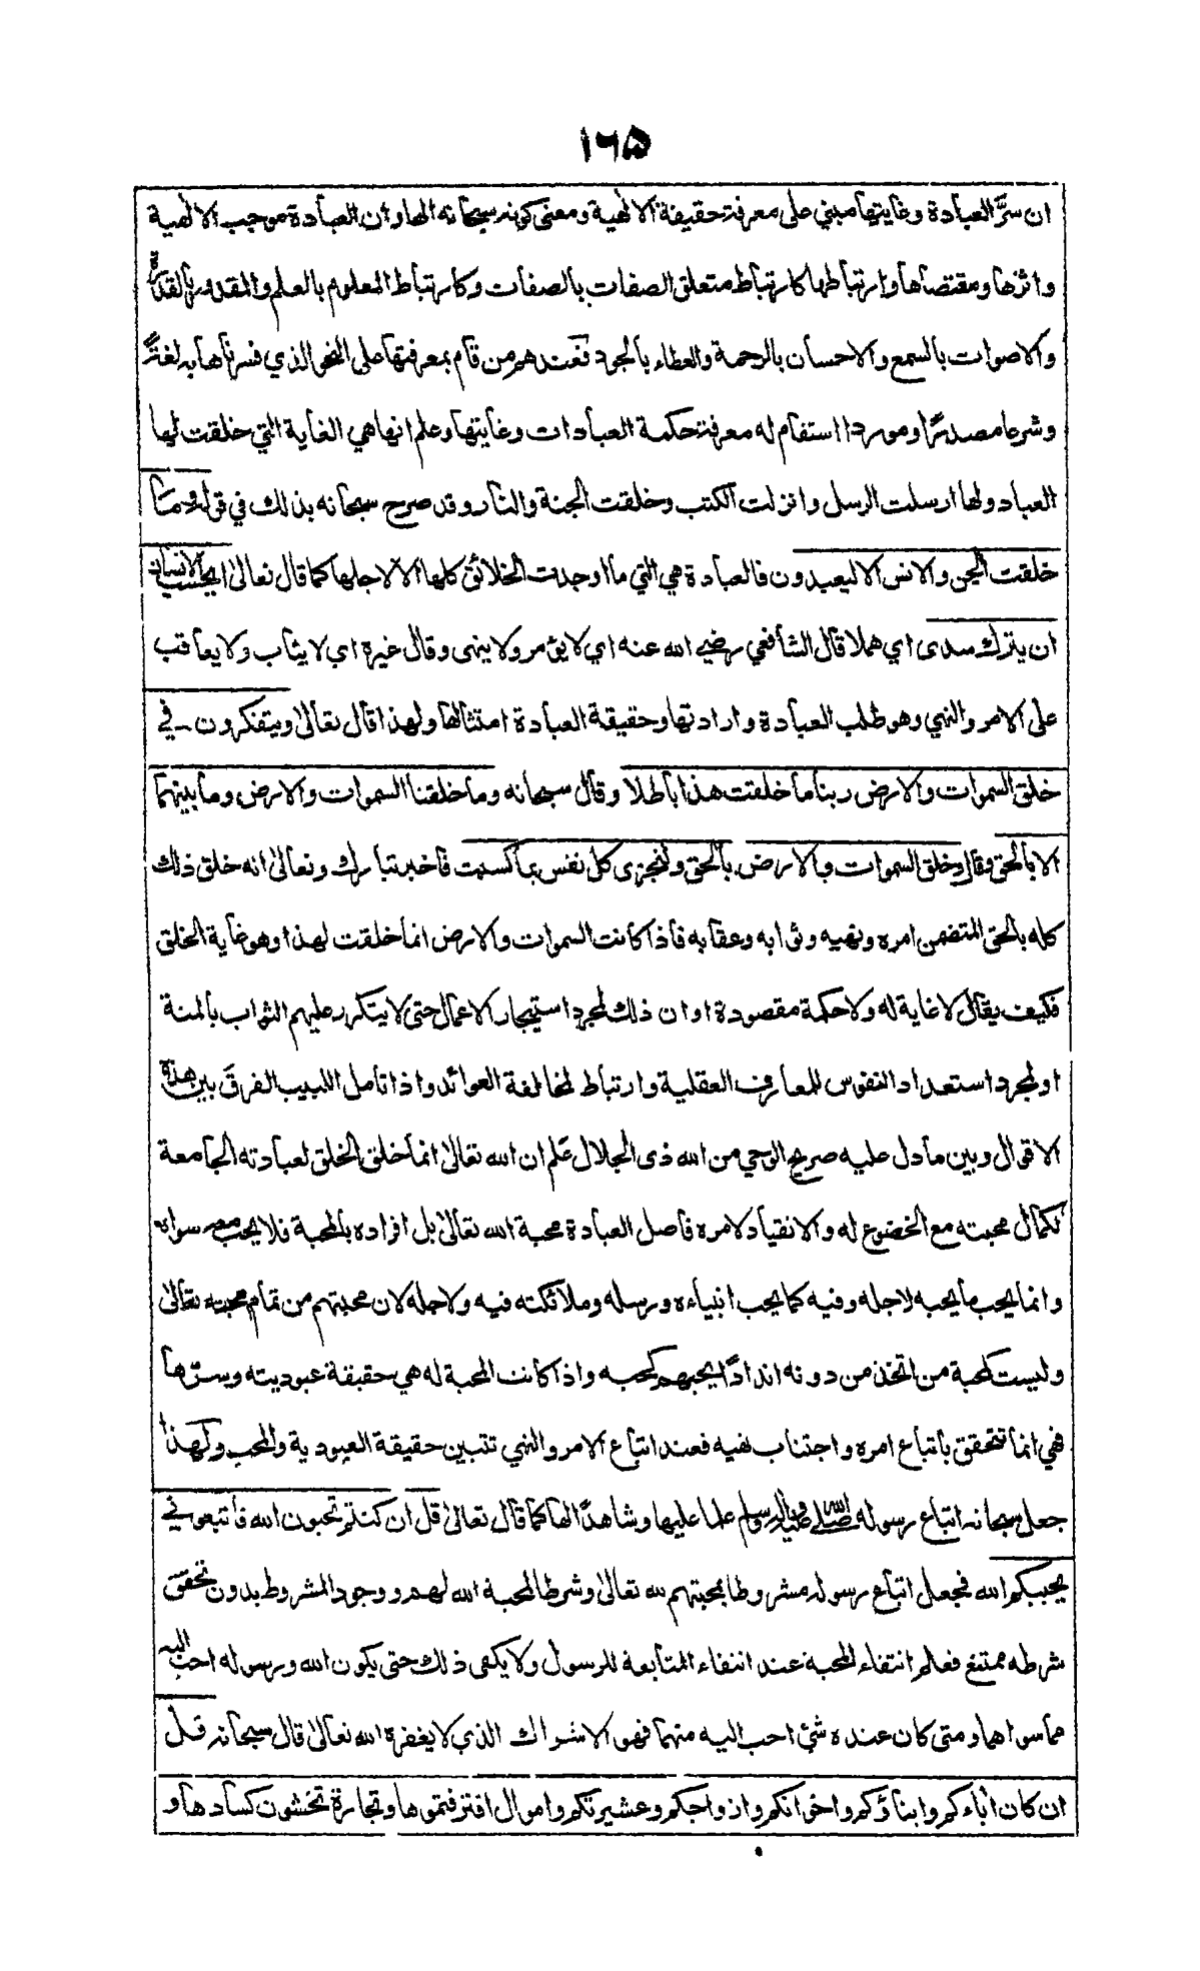 ١٦٥
ان سرَّ العبادة وغايتها مبني على معرفة حقيقة الالهية ومعنى كونه سبحانه الها وان العبادة موجب الالهية
واثرها ومقتضاها وارتباطها كارتباط متعلق الصفات بالصفات وكارتباط المعلوم بالعلم والمقدور بالقدرة
والاصوات بالسمع والاحسان بالرحمة والعطاء بالجود فعندهم من قام بمعرفتها على النحو الذي فسرناها به لغةً
وشرعا مصدرًا وموردا استقام له معرفة حكمة العبادات وغايتها وعلم انها هي الغاية التي خلقت لها
العباد ولها ارسلت الرسل وانزلت الكتب وخلقت الجنة والنار وقد صرح سبحانه بذلك في قوله وما
خلقت الجن والانس الا ليعبدون فالعبادة هي التي ما اوجدت الخلائق كلها الا لاجلها كما قال تعالى ايحسب الانسان
ان يترك سدى اي هملا قال الشافعي رضي الله عنه اي لا يؤمر ولا ينهى وقال غيره اي لا يثاب ولا يعاقب
على الامر والنهي وهو طلب العبادة وارادتها وحقيقة العبادة امتثالها ولهذا قال تعالى ويتفكرون في
خلق السموات والارض ربنا ما خلقت هذا باطلا وقال سبحانه وما خلقنا السموات والارض وما بينهما
الا بالحق وقال وخلق السموات والارض بالحق ولتجزى كل نفس بما كسبت فاخبر تبارك وتعالى انه خلق ذلك
كله بالحق المتضمن امره ونهيه وثوابه وعقابه فاذا كانت السموات والارض انما خلقت لهذا وهو غاية الخلق
فكيف يقال لا غاية له ولا حكمة مقصودة او ان ذلك لمجرد استيجار الاعمال حتى لا يتكرر عليهم الثواب بالمنة
او لمجرد استعداد النفوس للمعارف العقلية وارتباط لمخالفة العوائد واذا تامل اللبيب الفرق بين هذه
الاقوال وبين ما دل عليه صريح الوحي من الله ذى الجلال عَلم ان الله تعالى انما خلق الخلق لعبادته الجامعة
لكمال محبته مع الخضوع له والانقياد لامره فاصل العبادة محبة الله تعالى بل افراده بالمحبة فلا يحب معه سواه
وانما يحب ما يحبه لاجله وفيه كما يحب انبياءه ورسله وملائكته فيه ولاجله لان محبتهم من تمام محبته تعالى
وليست كمحبة من اتخذ من دونه اندادًا يحبهم كحبه واذا كانت المحبة له هي حقيقة عبوديته وسرّها
فهي انما تتحقق باتباع امره واجتناب نهيه فعند اتباع الامر والنهي تتبين حقيقة العبودية والمحب ولهذا
جعل سبحانه اتباع رسوله صلى الله عليه واله وسلم علما عليها وشاهدًا لها كما قال تعالى قل ان كنتم تحبون الله فاتبعوني
يحببكم الله فجعل اتباع رسوله مشروطا بمحبتهم لله تعالى وشرطا لمحبة الله لهم ووجود المشروط بدون تحقق
شرطه ممتنع فعلم انتفاء المحبة عند انتفاء المتابعة للرسول ولا يكفى ذلك حتى يكون الله ورسوله احب اليه
مما سواهما ومتى كان عنده شئ احب اليه منهما فهو الاشراك الذي لا يغفره الله تعالى قال سبحانه قل
ان كان اباءكم وابناؤكم واخوانكم وازواجكم وعشيرتكم واموال اقترفتموها وتجارة تخشون كسادها و